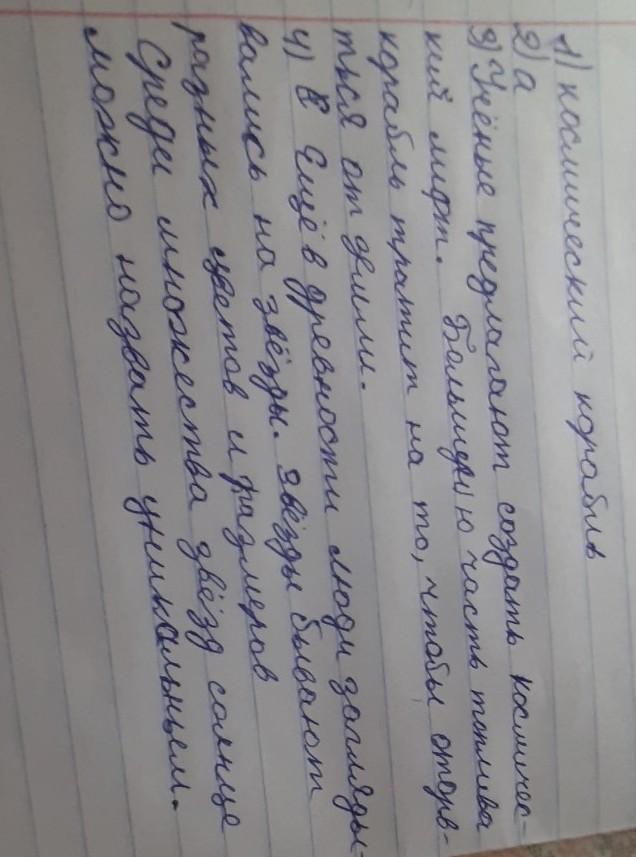 1) космический корабль
2) а
3) Учёные предлагают создать космичес-
кий лифт. Большую часть топлива
корабль тратит на то, чтобы оторв-
ться от земли.
4) Ещё в древности люди загляды-
вались на звёзды. Звёзды бывают
разных цветов и размеров
Среди множества звёзд солнце
можно назвать уникальным.